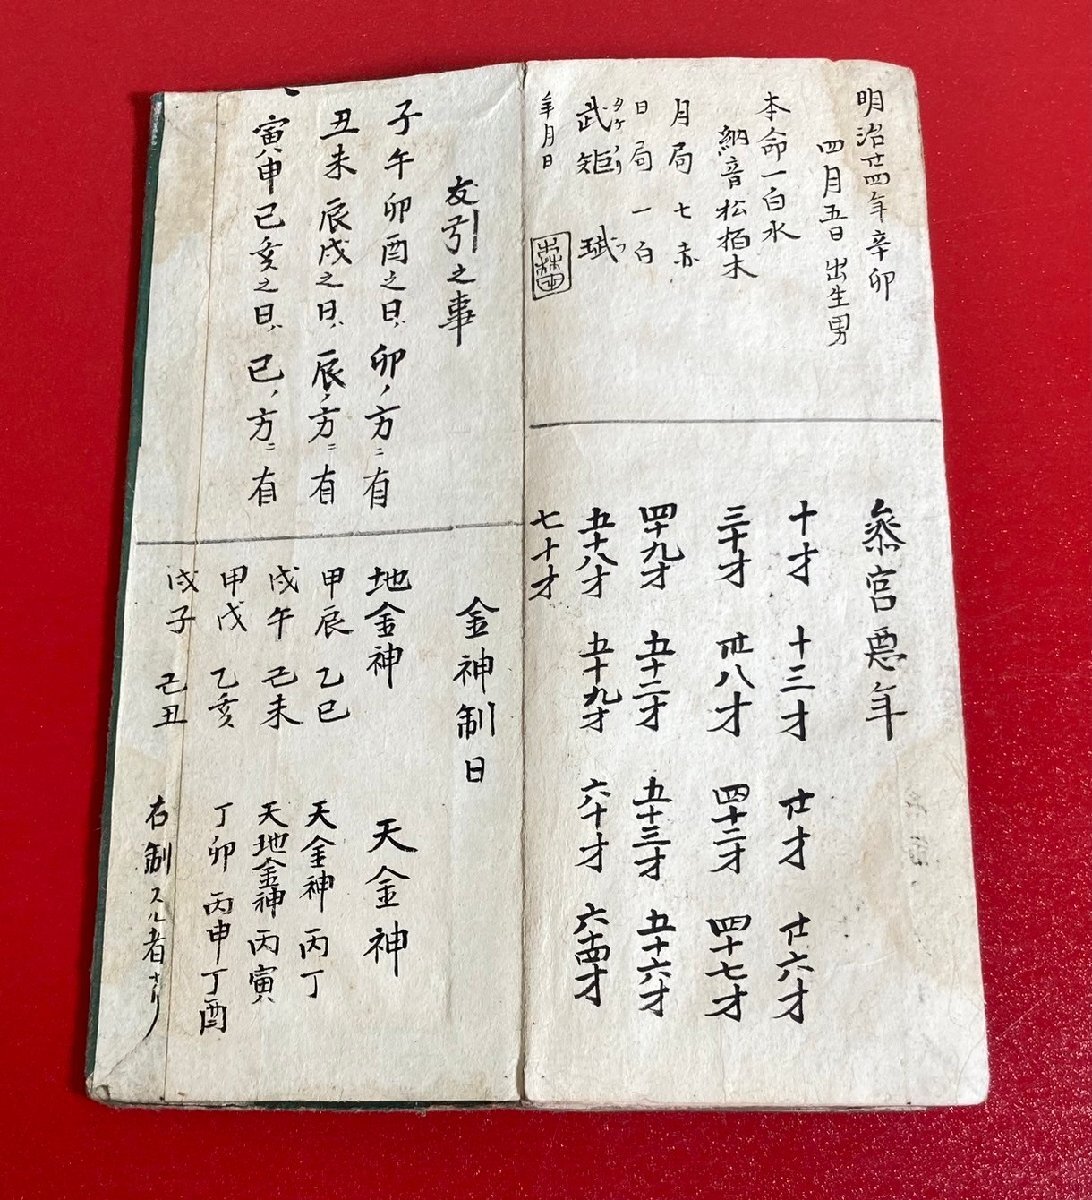 明治廿四年辛卯
四月五日出生男
本命一白水
納音松栢木
月局七赤
日局一白
武矩
年月日
十才 十三才 廿才 廿六才
三十才 卅八才 四十二才 四十七才
四十九才 五十二才 五十三才 五十六才
五十八才 五十九才 六十才 六十四才
七十才
友引之事
子午卯酉之日ハ卯ノ方ニ有
丑未辰戌之日ハ辰ノ方ニ有
寅申巳亥之日ハ巳ノ方ニ有
金神制日
地金神 天金神
甲辰 乙巳 天金神 丙丁
戊午 己未 天地金神 丙寅
甲戌 乙亥 丁卯 丙申 丁酉
戊子 己丑 右制スル者ナリ